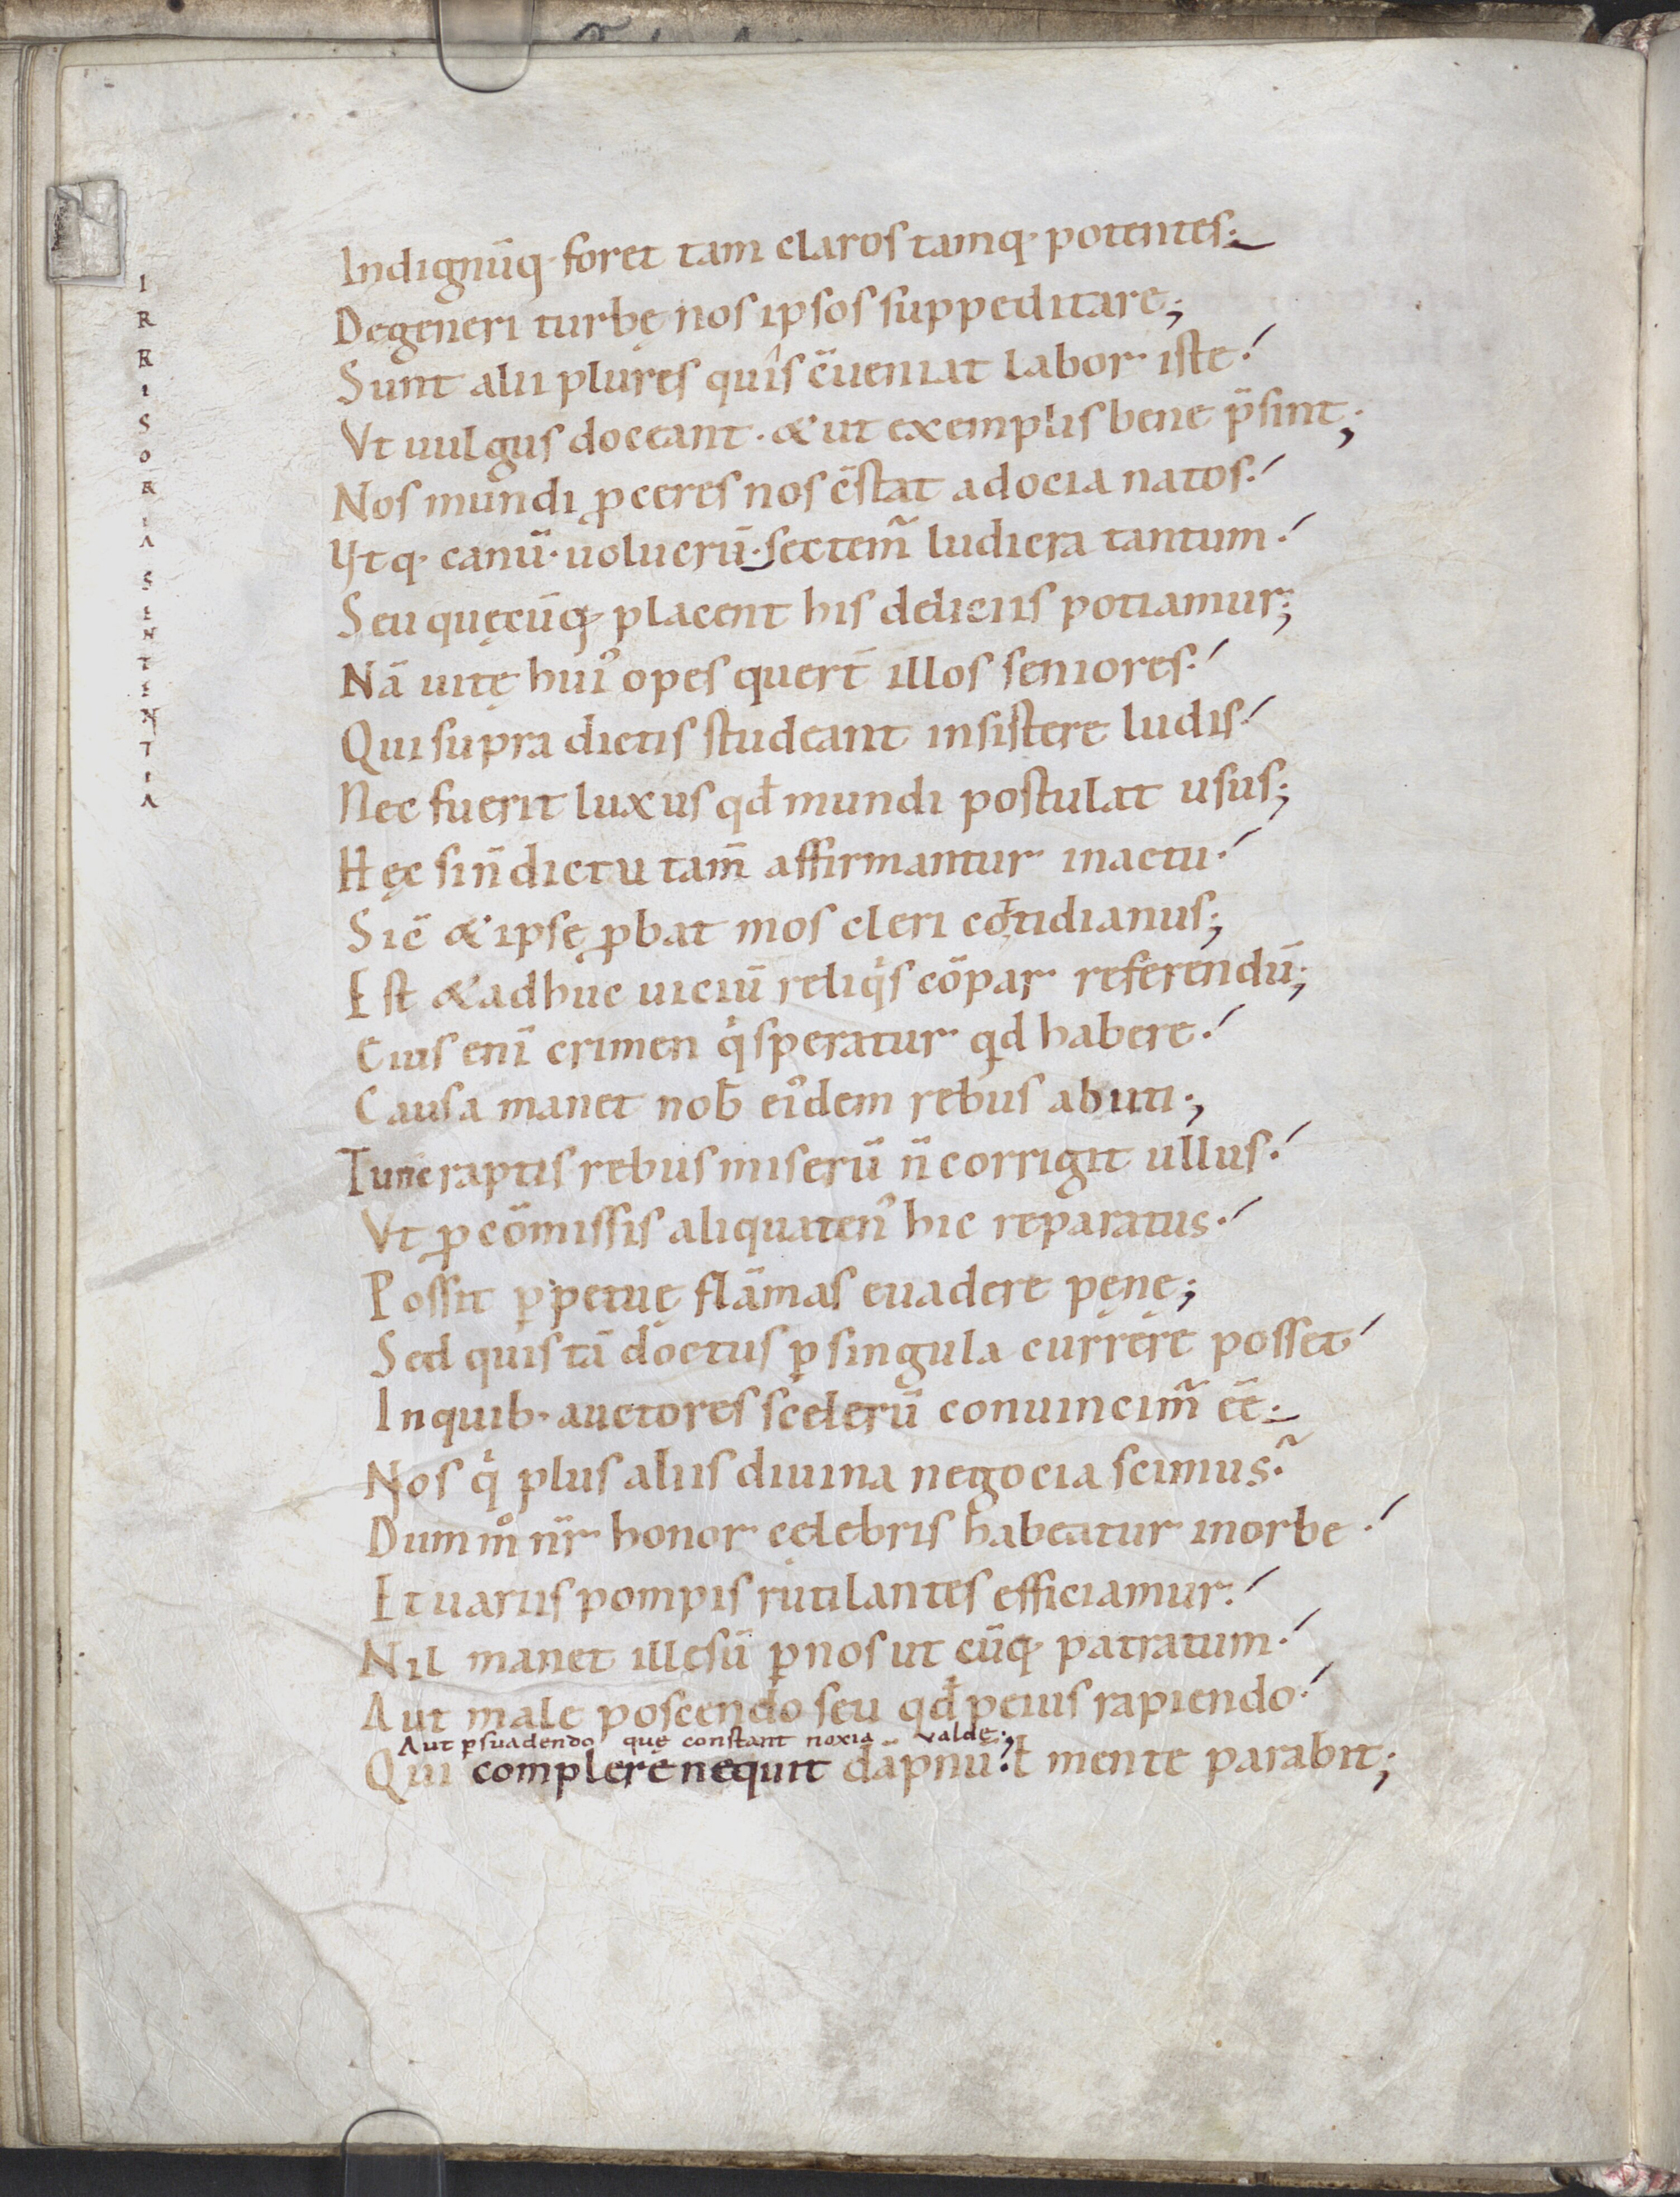 IRRISORIA SENTENTIA
Indignūq· foret tam claros tamq· potentes·
Degeneri turbę nos ipsos suppeditare;
Sunt alii plures quîs c̄ueniat labor iste·
Vt uulgus doceant· & ut exemplis bene p̄sint;
Nos mundi ꝓceres nos c̄stat ad ocia natos·
Ytq· canū· uolucrū· sectem̃ ludicra tantum·
Seu quęcūq· placent his deliciis potiamur;
Nā uitę hui᾿ opes quert̄ illos seniores·
Qui supra dictis studeant insistere ludis·
Nec fuerit luxus qđ mundi postulat usus;
Hęc si n̄ dictu tam̄ affirmantur in actu·
Sic̄ & ipse ꝓbat mos cleri cotidianus;
Est & adhuc uiciū reliqͥs cōpar referendū;
Cuius enī crimen qͥ speratur qd habere·
Causa manet nob̄ ei᾿dem rebus abuti·,
Tunc raptis rebus miserū n̄ corrigit ullus·
Vt ꝓ cōmissis aliquaten᾿ hic reparatus·
Possit ꝑpetuę flāmas euadere pęnę;
Sed quis tā doctus ꝑ singula currere posset·
In quib· auctores scelerū conuincim̃ eē·
Nos qͥ plus aliis diuina negocia scimus·
Dum m̊ nr̄ honor celebris habeatur in orbe·
Et uariis pompis rutilantes efficiamur·
Nil manet illęsū ꝑ nos ut cūq· patratum·
Aut male poscendo seu qđ peius rapiendo·
Aut ꝑsuadendo quę constant noxia valde·
Qui complere nequit dāpnū· ł mente parabit;